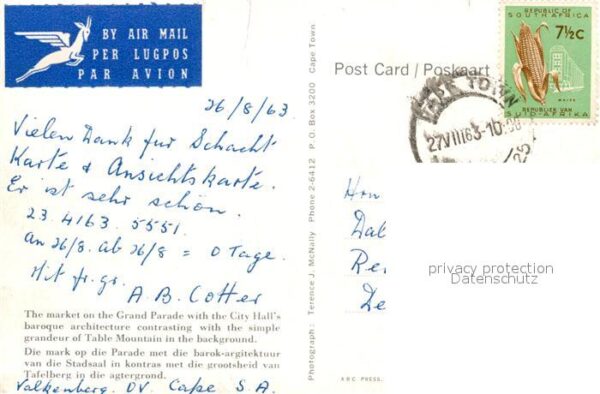 BY AIR MAIL
PER LUGPOS
PAR AVION
26/8/63.
Vielen Dank für Schacht
Karte & Ansichtskarte.
Er ist sehr schon.
23. 4163 5551.
An 26/8. ab 26/8 = 0 Tage.
Mit fr. gr.
A. B. Cotter
The market on the Grand Parade with the City Hall's
baroque architecture contrasting with the simple
grandeur of Table Mountain in the background.
Die mark op die Parade met die barok-argitektuur
van die Stadsaal in kontras met die grootsheid van
Tafelberg in die agtergrond.
Valkenberg. OV. Cape S. A.
Photograph: Terence J. McNally Phone 2-6412 P.O. Box 3200 Cape Town
Post Card / Poskaart
REPUBLIC OF
SOUTH AFRICA
7½c
MAIZE
REPUBLIEK VAN
SUID-AFRIKA
CAPE TOWN
27VIII63-10
Hon
Dal
Re
De
privacy protection
Datenschutz
ABC PRESS.